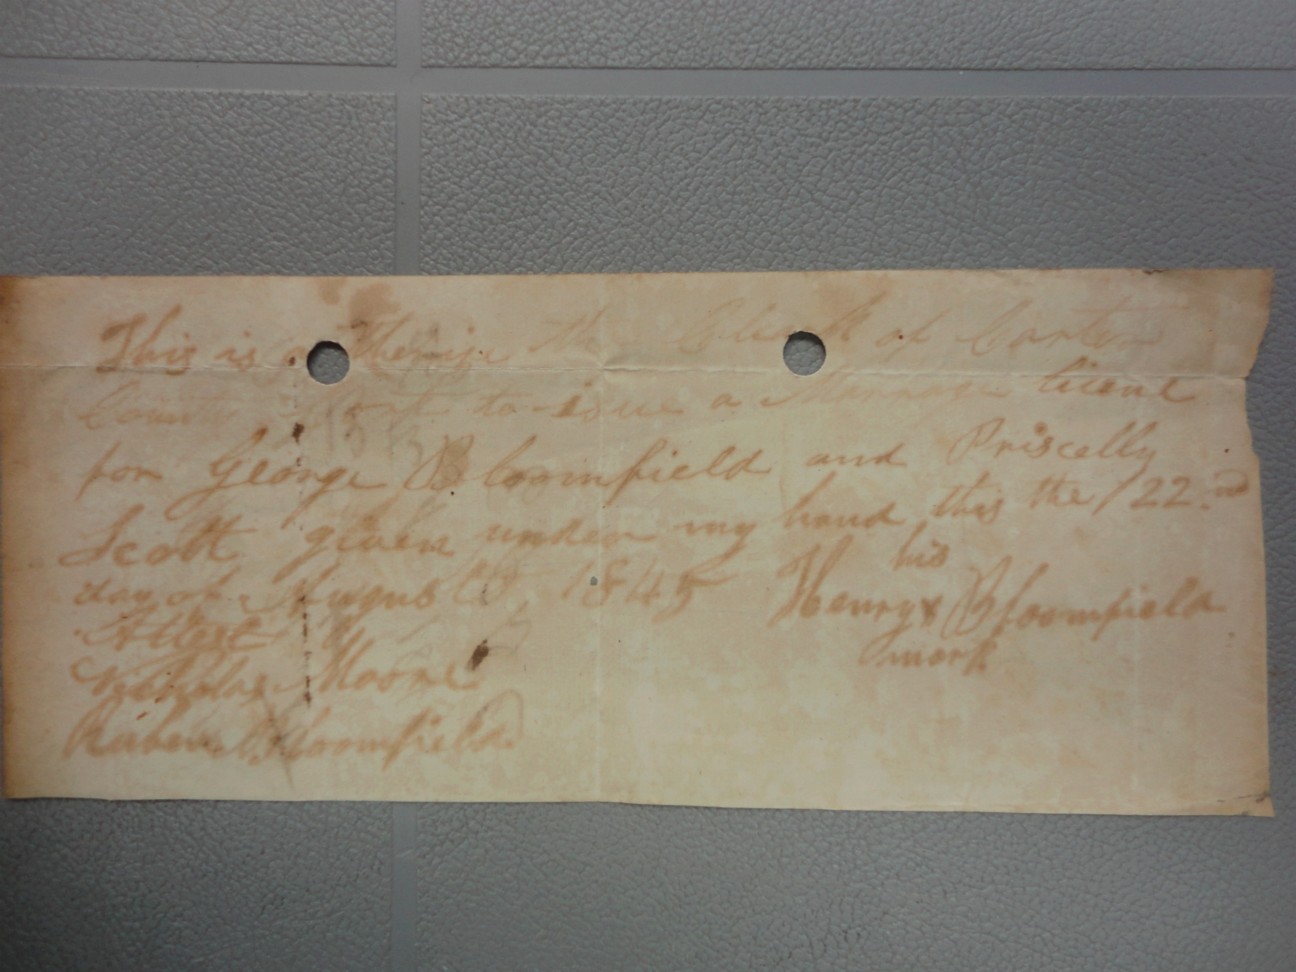 This is otherize the Clerk of Carter
County Cort to issue a Marrage licent
for George Bloomfield and Priscelly
Scott given under my hand this the 22nd
day of August, 1845 his
Henry x Bloomfield
mark
Attest
Nicholas Moore
Ruben Bloomfield